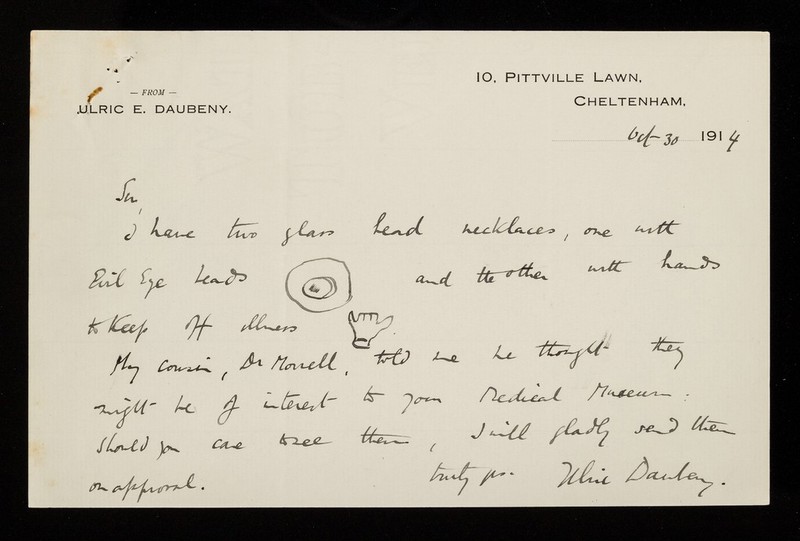 — FROM —
ULRIC E. DAUBENY.
10, PITTVILLE LAWN,
CHELTENHAM,
Oct 30 1914
Sir,
I have two glass bead necklaces, one with
Evil Eye beads and the other with hands
to keep off illness
My cousin, Dr Morrell, told me he thought they
might be of interest to your Medical Museum:
should you care to see them, I will gladly send them
on approval. truly yrs. Ulric Daubeny.